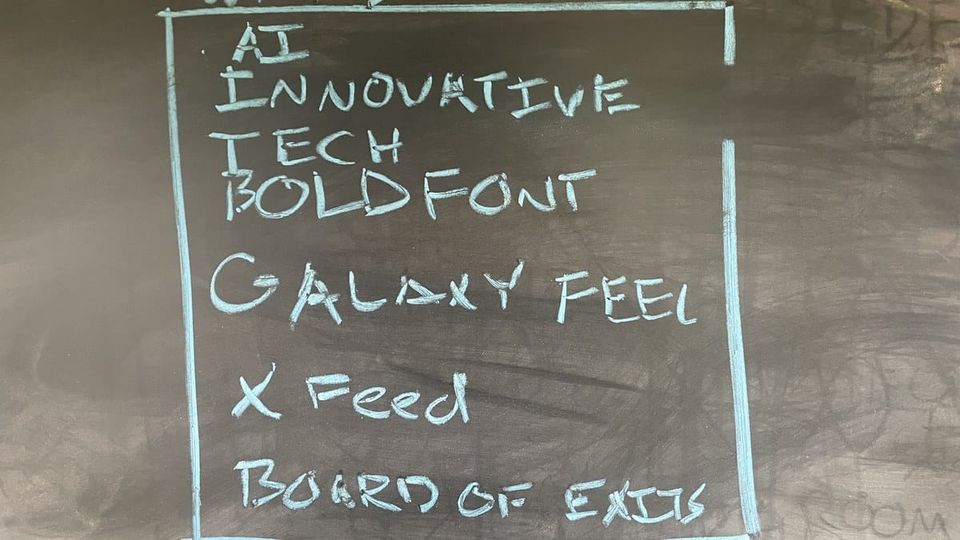 AI
INNOVATIVE
TECH
BOLD FONT
GALAXY FEEL
X Feed
BOARD OF EXITS
ROOM